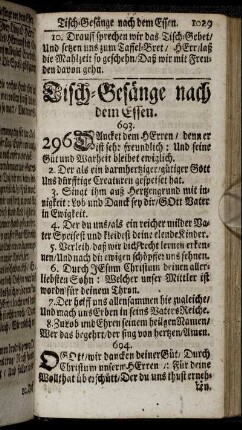 Tisch-Gesänge nach dem Essen. 1029
10. Drauff sprechen wir das Tisch-Gebet/
Und setzen uns zum Taffel-Bret/ HErr/laß
die Mahlzeit so geschehn/Daß wir mit Freu-
den davon gehn.
Tisch-Gesänge nach
dem Essen.
693.
296 DAncket dem HErren/ denn er
ist sehr freundlich: Und seine
Güt und Warheit bleibet ewiglich.
2. Der als ein barmhertziger/gütiger Gott
Uns dürfftige Creaturen gespeiset hat.
3. Singt ihm auß Hertzengrund mit in-
nigkeit: Lob und Danck sey dir/GOtt Vater
in Ewigkeit.
4. Der du uns/als ein reicher milder Va-
ter Speisest und kleidest deine elende Kinder.
5. Verleih/daß wir dich recht lernen erken-
nen/Und nach dir ewigen schöpffer uns sehnen.
6. Durch JEsum Christum deinen aller-
liebsten Sohn: Welcher unser Mittler ist
worden für deinem Thron.
7. Der helff uns allensammen hie zugleiche/
Und mach uns Erben in seines Vaters Reiche.
8. Zu Lob und Ehren seinem heilgen Namen/
Wer das begehrt/der sing von hertzen/Amen.
694.
O GOtt/wir dancken deiner Güt/ Durch
Christum unsern HErren/: Für deine
Wolthat überschütt/Der du uns thust erneh-
ren.